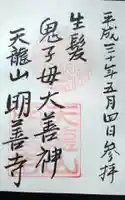 平成三十年五月四日参拝
生髪
鬼子母大善神
天龍山明善寺